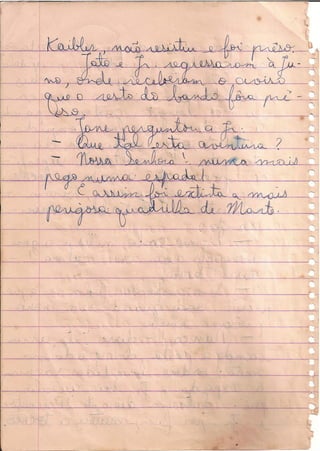 Kaibler, não resistiu e foi prêso.
Jato e Jr. regressaram à Ju-
no, onde receberam o aviso
que o resto do bando fôra prê-
so.
Jane perguntou a Jr.
- Que tal esta aventura ?
- Nossa Senhora ! nunca mais
pego numa espada !
E assim foi extinta a mais
perigosa quadrilha de Marte.